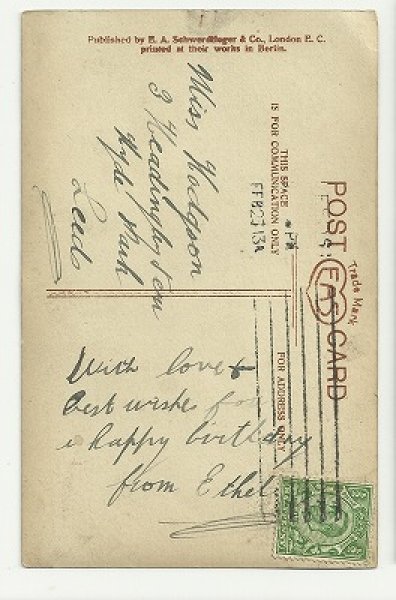 Published by E. A. Schwerdtfeger & Co., London E. C.
printed at their works in Berlin.
POST CARD
Trade Mark
EAS
THIS SPACE
IS FOR COMMUNICATION ONLY
FOR ADDRESS ONLY
PM
FE 23 13
Miss Hodgson
3 Headingley Terr
Hyde Park
Leeds
With love &
best wishes for
a happy birthday
from Ethel